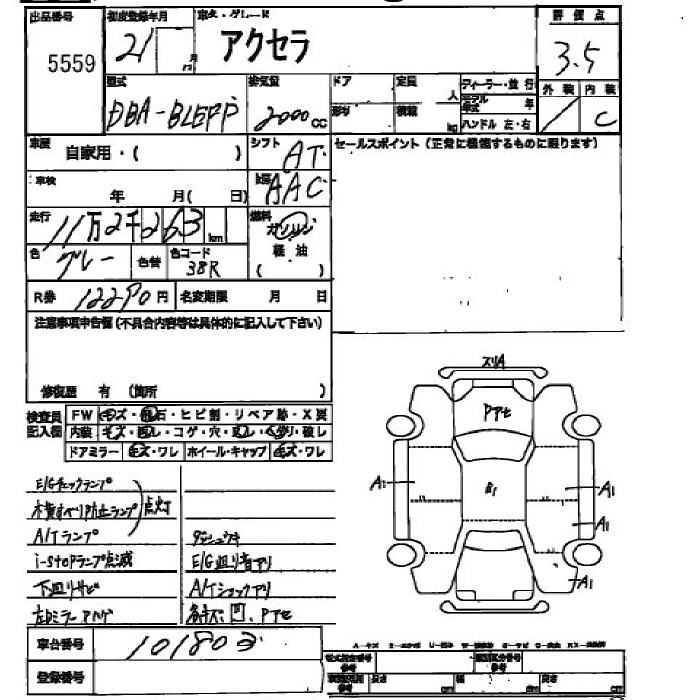 出品番号 初度登録年月 車名・グレード 評価点
5559 21 月 アクセラ 3.5
型式 排気量 ドア 定員 ディーラー・並行 外装 内装
DBA-BLEFP 2000cc 形状 積載 人 モデル年式 年 C
kg ハンドル 左・右
車歴 自家用・( ) シフト AT セールスポイント (正常に機能するものに限ります)
車検 年 月( 日) AAC
走行 11万2千263 km 燃料 ガソリン
色 グレー 色替 色コード 38R 軽油
( )
R券 12290円 名変期限 月 日
注意事項申告欄(不具合内容等は具体的に記入して下さい)
修復歴 有 (箇所 )
検査員記入欄 FW キズ・飛石・ヒビ割・リペア跡・X要
内装 キズ・汚レ・コゲ・穴・破レ
ドアミラー キズ・ワレ ホイール・キャップ キズ・ワレ
スリA
Pアセ
A1
B1
A1
A1
A1
E/Gチェックランプ
横すべり防止ランプ 点灯
A/Tランプ ダシュウキ
i-stopランプ点滅 E/G廻り音アリ
下廻りサビ A/Tショックアリ
左Dミラーアルゲ 各キズ、凹、Pアセ
車台番号 101803
登録番号
型式指定番号 類別区分番号
長さ cm 幅 cm 高さ cm